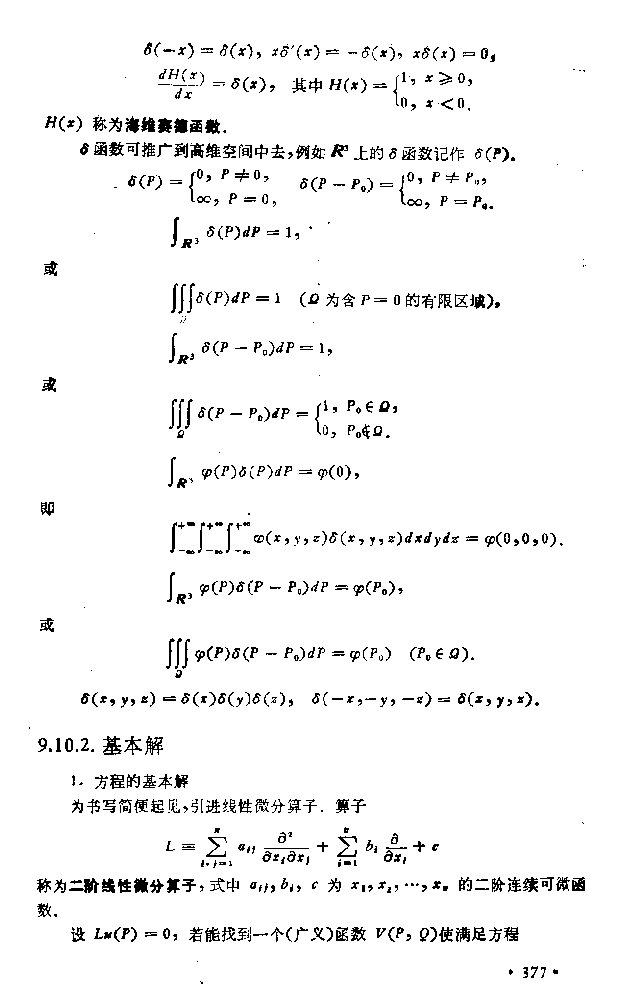 δ(−x) = δ(x), xδ′(x) = −δ(x), xδ(x) = 0,
dH(x)/dx = δ(x), 其中 H(x) = {1, x ≥ 0, 0, x < 0.
H(x) 称为海维赛德函数.
δ 函数可推广到高维空间中去,例如 R³ 上的 δ 函数记作 δ(P).
δ(P) = {0, P ≠ 0, ∞, P = 0, δ(P − P₀) = {0, P ≠ P₀, ∞, P = P₀.
∫_R³ δ(P)dP = 1,
或
∭_Ω δ(P)dP = 1 (Ω 为含 P = 0 的有限区域).
∫_R³ δ(P − P₀)dP = 1,
或
∭_Ω δ(P − P₀)dP = {1, P₀ ∈ Ω, 0, P₀ ∉ Ω.
∫_R³ φ(P)δ(P)dP = φ(0),
即
∫_{−∞}^{+∞} ∫_{−∞}^{+∞} ∫_{−∞}^{+∞} φ(x, y, z)δ(x, y, z)dxdydz = φ(0,0,0).
∫_R³ φ(P)δ(P − P₀)dP = φ(P₀),
或
∭_Ω φ(P)δ(P − P₀)dP = φ(P₀) (P₀ ∈ Ω).
δ(x, y, z) = δ(x)δ(y)δ(z), δ(−x, −y, −z) = δ(x, y, z).
9.10.2. 基本解
1. 方程的基本解
为书写简便起见,引进线性微分算子. 算子
L ≡ ∑_{i,j=1}^{n} a_{ij} ∂²/∂x_i∂x_j + ∑_{i=1}^{n} b_i ∂/∂x_i + c
称为二阶线性微分算子,式中 a_{ij}, b_i, c 为 x₁, x₂, ⋯, x_n 的二阶连续可微函
数.
设 Lu(P) = 0, 若能找到一个(广义)函数 V(P, Q)使满足方程
• 377 •